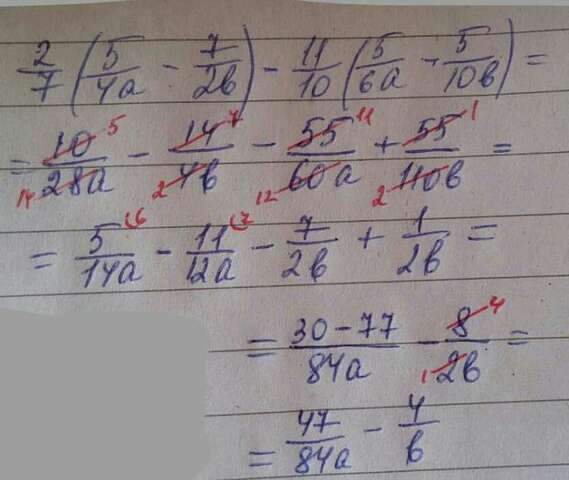 2/7 (5/4a - 7/2b) - 11/10 (5/6a - 5/10b) =
= 10/28a - 14/4b - 55/60a + 55/110b =
= 5/14a - 11/12a - 7/2b + 1/2b =
= 30-77/84a - 8/2b =
= 47/84a - 4/b